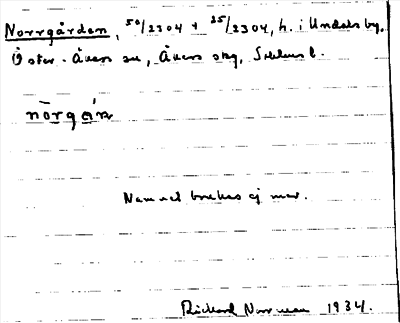 Norrgården, 50/2304 + 25/2304, h. i Undersby,
Öster-Åkers sn, Åkers skg, Sthlms l.
norgán
Namnet brukas ej mer.
Rickard Norman 1934.